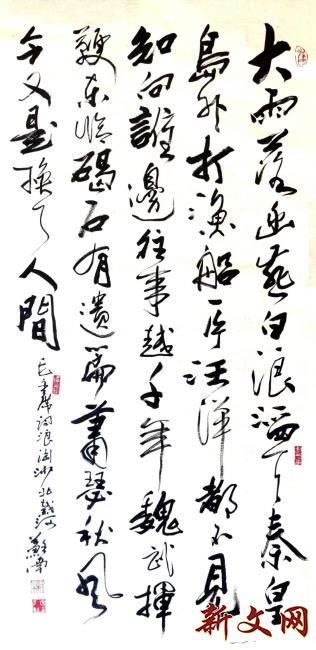 大雨落幽燕白浪滔天秦皇
島外打漁船一片汪洋都不見
知向誰邊往事越千年魏武揮
鞭東臨碣石有遺篇蕭瑟秋風
今又是換了人間
毛主席詞浪淘沙北戴河
新文网